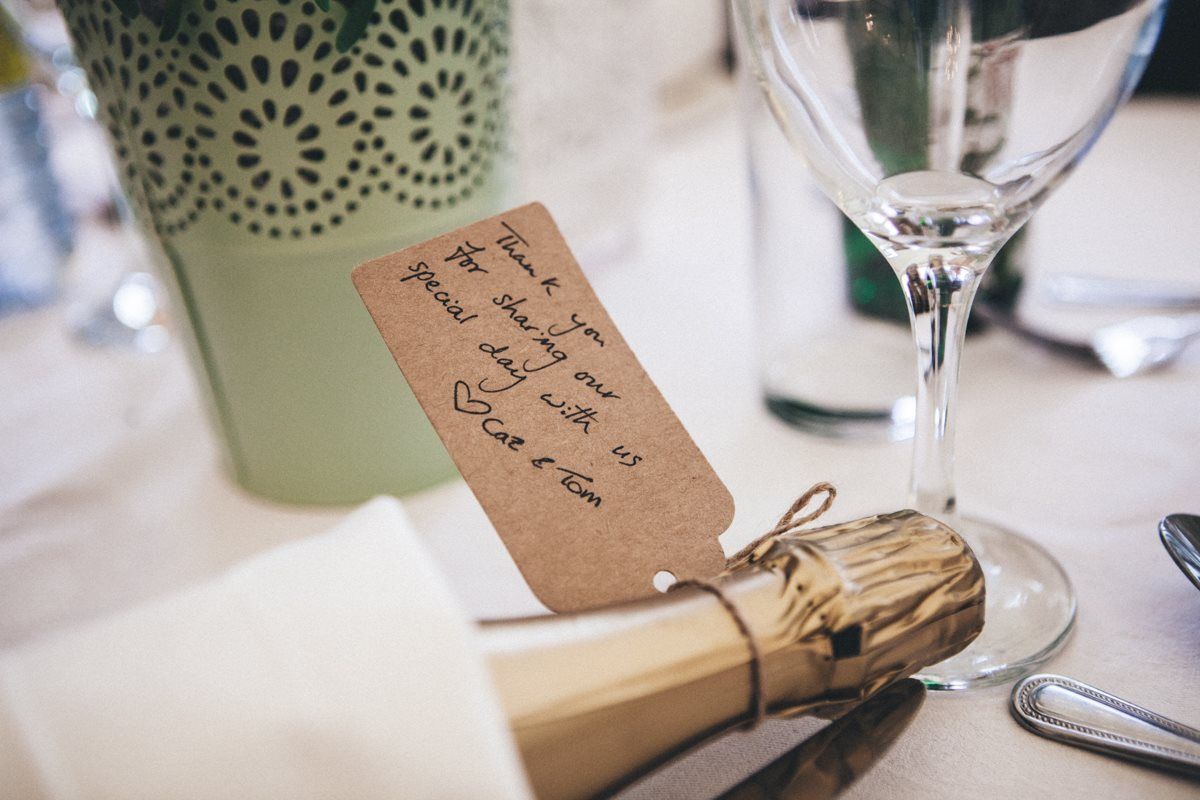 Thank you
for sharing our
special day with us
♡ Caz & Tom